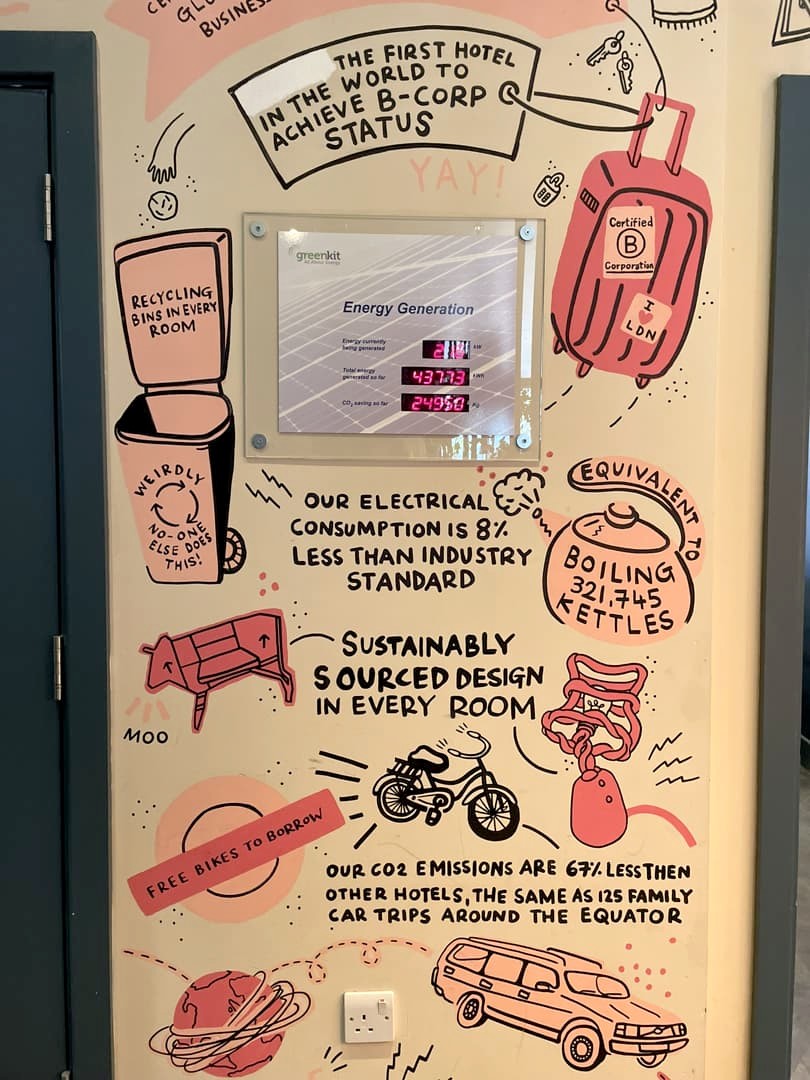 BUSINESS
THE FIRST HOTEL
IN THE WORLD TO
ACHIEVE B-CORP
STATUS
YAY!
Certified
B
Corporation
I
LDN
greenkit
All About Energy
Energy Generation
Energy currently
being generated
kW
Total energy
generated so far
43773 kWh
CO2 saving so far
24950 Kg
RECYCLING
BINS IN EVERY
ROOM
WEIRDLY
NO-ONE
ELSE DOES
THIS!
OUR ELECTRICAL
CONSUMPTION IS 8%
LESS THAN INDUSTRY
STANDARD
EQUIVALENT TO
BOILING
321,745
KETTLES
SUSTAINABLY
SOURCED DESIGN
IN EVERY ROOM
MOO
FREE BIKES TO BORROW
OUR CO2 EMISSIONS ARE 67% LESS THEN
OTHER HOTELS, THE SAME AS 125 FAMILY
CAR TRIPS AROUND THE EQUATOR